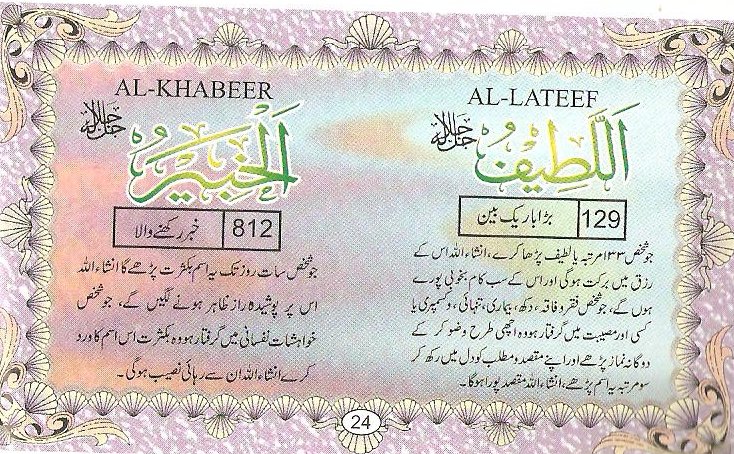 AL-LATEEF
اَللَّطِيْفُ جل جلالہ
129 بڑا باریک بین
جو شخص ۱۳۳ مرتبہ یا لطیف پڑھا کرے، انشاء اللہ اس کے
رزق میں برکت ہوگی اور اس کے سب کام بخوبی پورے
ہوں گے، جو شخص فقر و فاقہ، دکھ، بیماری، تنہائی، و کسمپری یا
کسی اور مصیبت میں گرفتار ہو وہ اچھی طرح وضو کر کے
دوگانہ نماز پڑھے اور اپنے مقصد و مطلب کو دل میں رکھ کر
سو مرتبہ یہ اسم پڑھے، انشاء اللہ مقصد پورا ہوگا۔
AL-KHABEER
اَلْخَبِيْرُ جل جلالہ
812 خبر رکھنے والا
جو شخص سات روز تک یہ اسم بکثرت پڑھے گا انشاء اللہ
اس پر پوشیدہ راز ظاہر ہونے لگیں گے، جو شخص
خواہشات نفسانی میں گرفتار ہو وہ بکثرت اس اسم کا ورد
کرے انشاء اللہ ان سے رہائی نصیب ہوگی۔
24